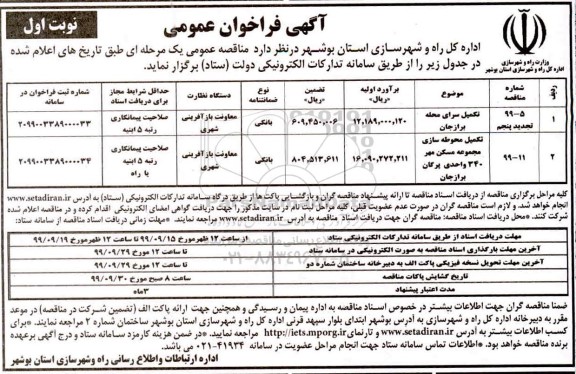 آگهی فراخوان عمومی
نوبت اول
وزارت راه و شهرسازی
اداره کل راه و شهرسازی استان بوشهر
اداره کل راه و شهرسازی استان بوشهر درنظر دارد مناقصه عمومی یک مرحله ای طبق تاریخ های اعلام شده
در جدول زیر را از طریق سامانه تدارکات الکترونیکی دولت (ستاد) برگزار نماید.
ردیف شماره مناقصه موضوع برآورد اولیه «ریال» تضمین «ریال» نوع ضمانتنامه دستگاه نظارت حداقل شرایط مجاز برای دریافت اسناد شماره ثبت فراخوان در سامانه
۱ ۹۹-۵ تجدید پنجم تکمیل سرای محله برازجان ۱۲،۱۸۹،۰۰۰،۱۲۰ ۶۰۹،۴۵۰،۰۰۰ بانکی معاونت بازآفرینی شهری صلاحیت پیمانکاری رتبه ۵ ابنیه ۲۰۹۹۰۰۳۳۸۹۰۰۰۰۳۳
۲ ۹۹-۱۱ تکمیل محوطه سازی مجموعه مسکن مهر ۳۴۰ واحدی پرکان برازجان ۱۶،۰۹۰،۲۷۲،۲۱۱ ۸۰۴،۵۱۳،۶۱۱ بانکی معاونت بازآفرینی شهری صلاحیت پیمانکاری رتبه ۵ ابنیه یا راه ۲۰۹۹۰۰۳۳۸۹۰۰۰۰۳۴
کلیه مراحل برگزاری مناقصه از دریافت اسناد مناقصه تا ارائه پیشنهاد مناقصه گران و بازگشایی پاکت ها از طریق درگاه سامانه تدارکات الکترونیکی (ستاد) به آدرس www.setadiran.ir
انجام خواهد شد. و لازم است مناقصه گران در صورت عدم عضویت قبلی، کلیه مراحل ثبت نام در سایت مذکور را جهت دریافت گواهی امضای الکترونیکی اقدام کرده و در مناقصه اعلام شده
شرکت کنند. «محل دریافت اسناد مناقصه: مناقصه گران جهت دریافت اسناد مناقصه به آدرس www.setadiran.ir مراجعه نمایند. «مهلت زمانی دریافت اسناد مناقصه از سامانه ستاد:
مهلت دریافت اسناد از طریق سامانه تدارکات الکترونیکی ستاد از ساعت ۱۲ ظهر مورخ ۹۹/۰۹/۱۵ تا ساعت ۱۲ ظهر مورخ ۹۹/۰۹/۱۹
آخرین مهلت بارگذاری اسناد مناقصه به صورت الکترونیکی در سامانه ستاد تا ساعت ۱۲ مورخ ۹۹/۰۹/۲۹
آخرین مهلت تحویل نسخه فیزیکی پاکت الف به دبیرخانه ساختمان شماره دو تا ساعت ۱۲ مورخ ۹۹/۰۹/۲۹
تاریخ گشایش پاکات مناقصه ساعت ۸ صبح مورخ ۹۹/۰۹/۳۰
مدت اعتبار پیشنهاد ۳ماه
ضمنا مناقصه گران جهت اطلاعات بیشتر در خصوص اسناد مناقصه به اداره پیمان و رسیدگی و همچنین جهت ارائه پاکت الف (تضمین شرکت در مناقصه) در موعد
مقرر به دبیرخانه اداره کل راه و شهرسازی به آدرس بوشهر ابتدای بلوار سپهبد قرنی اداره کل راه و شهرسازی استان بوشهر ساختمان شماره ۲ مراجعه نمایند. «برای
کسب اطلاعات بیشتر به آدرس www.setadiran.ir و تارنمای http://iets.mporg.ir مراجعه نمایید. «در ضمن هزینه کارمزد سامانه ستاد و درج آگهی برعهده
برنده مناقصه خواهد بود. «اطلاعات تماس سامانه ستاد جهت انجام مراحل عضویت در سامانه ۴۱۹۳۴-۰۲۱ می باشد.
اداره ارتباطات و اطلاع رسانی راه و شهرسازی استان بوشهر